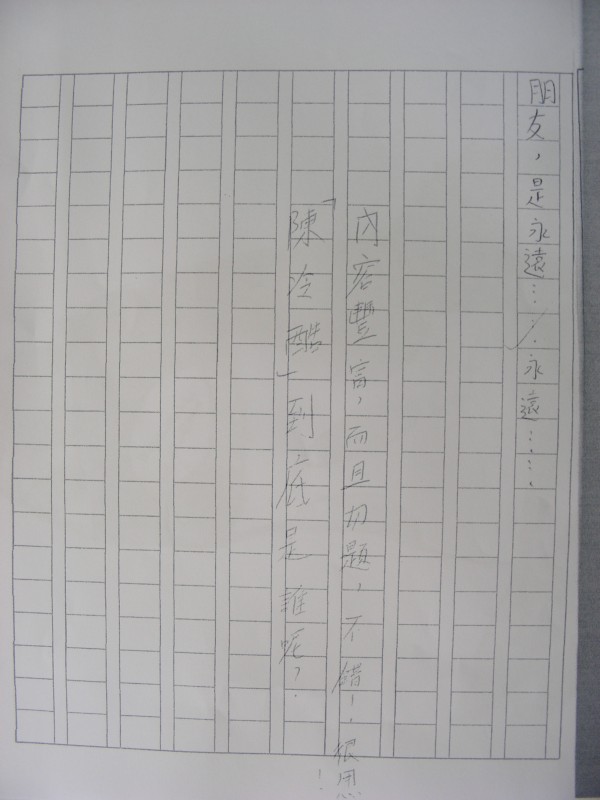 朋友，是永遠……永遠……。
內容豐富，而且切題，不錯！很
「陳冷酷」到底是誰呢？